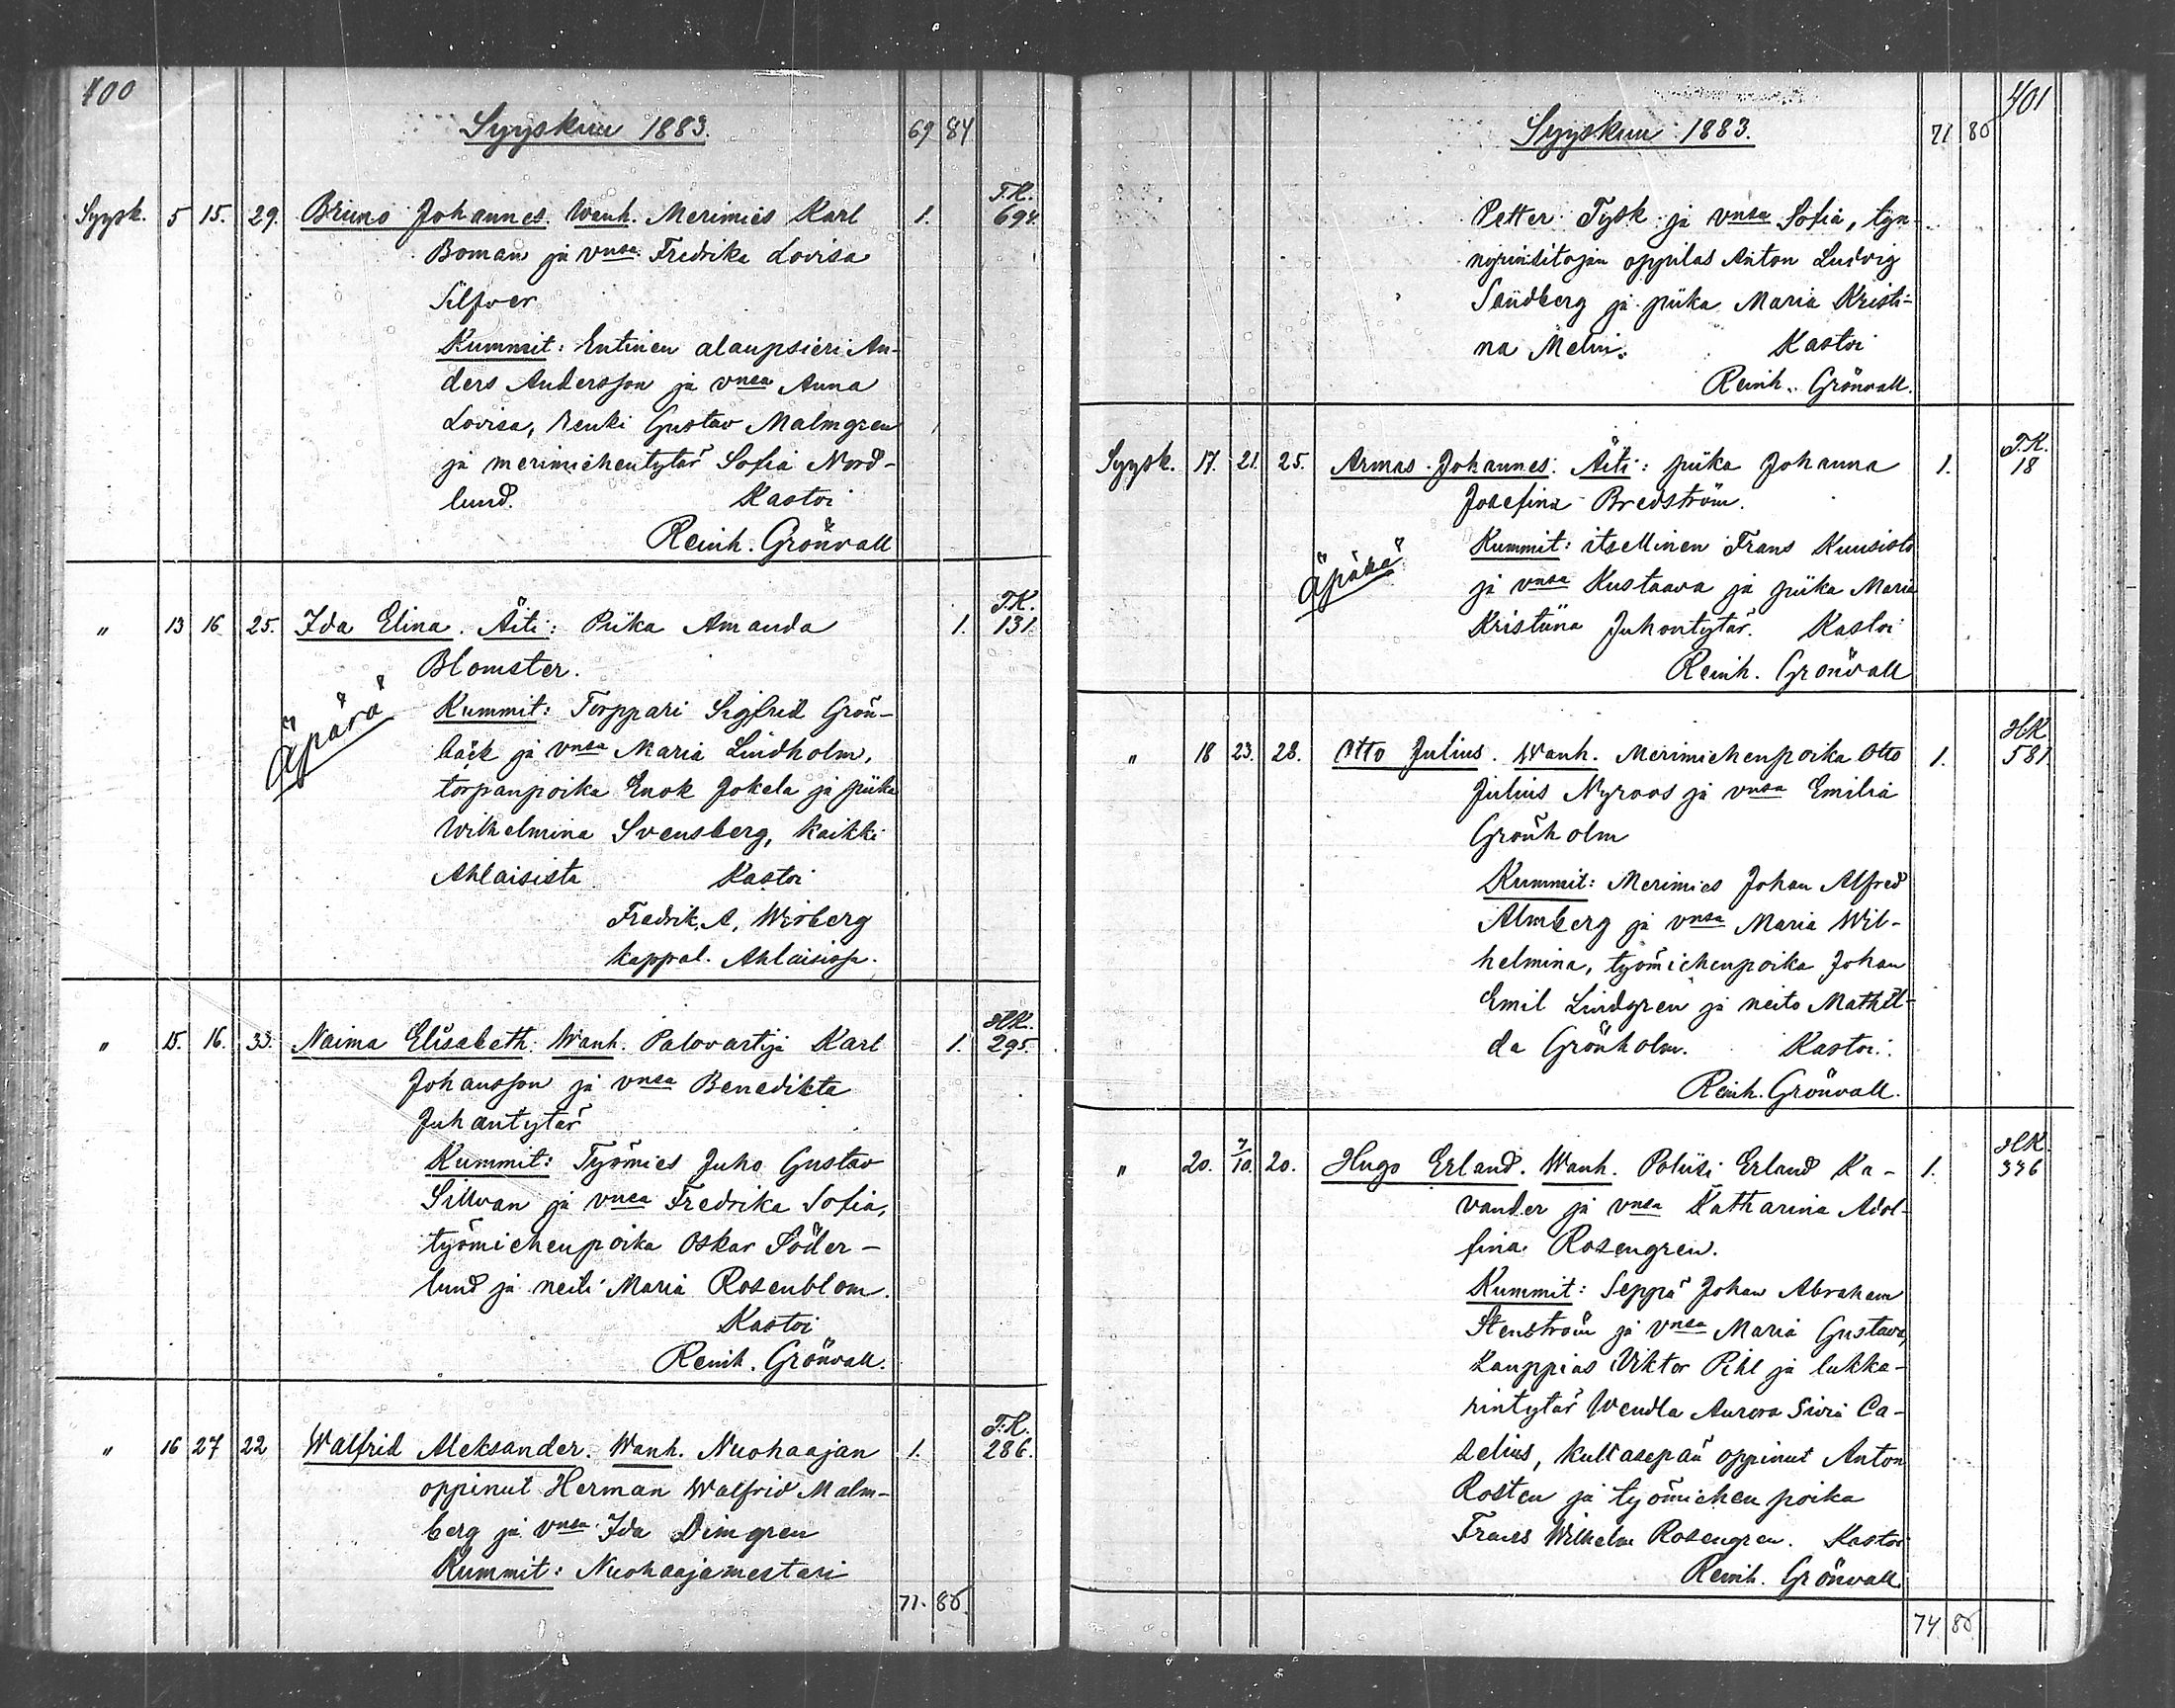 400
Syyskuu 1883. 69 84
T.K.
Syysk. 5 15. 29. Bruno Johannes. Wanh. Merimies Karl 1. 694.
Boman ja vnsa Fredrika Lovisa
Silfver
Kummit: Entinen alaupsieri An-
ders Andersson ja vnsa Anna
Lovisa, Renki Gustav Malmgren
ja merimiehentytär Sofia Nord-
lund. Kastoi
Reinh. Grönvall
T.K.
" 13 16 25. Ida Elina. Äiti: Piika Amanda 1. 131.
Blomster.
Äpärä
Kummit: Torppari Sigfrid Grön-
bäck ja vnsa Maria Lindholm,
torpanpoika Enok Jokela ja piika
Wilhelmina Svensberg, kaikki
Ahlaisista Kastoi
Fredrik. A. Wirberg
kappal. Ahlaisissa.
HK.
" 15. 16. 33. Naima Elisabeth. Wanh. Palovartija Karl 1. 295.
Johansson ja vnsa Benedikta
Juhantytär
Kummit: Työmies Juho Gustav
Sillvan ja vnsa Fredrika Sofia,
työmiehenpoika Oskar Söder-
lund ja neiti Maria Rosenblom.
Kastoi
Reinh. Grönvall.
T.K.
" 16 27 22 Walfrid Aleksander. Wanh. Nuohaajan 1. 286.
oppinut Herman Walfrid Malm-
berg ja vnsa Ida Dimgren
Kummit: Nuohaajamestari
71. 85.
401
Syyskuu 1883. 71 85
Petter Tysk ja vnsa Sofia, tyn-
nyrinsitojan oppilas Anton Ludvig
Sandberg ja piika Maria Kristi-
na Melin. Kastoi
Reinh. Grönvall.
T.K.
Syysk. 17. 21. 25. Armas Johannes. Äiti: piika Johanna 1. 18
Josefina Bredström.
Äpärä
Kummit: itsellinen Frans Kuusisto
ja vnsa Kustaava ja piika Maria
Kristiina Juhontytär. Kastoi
Reinh. Grönvall
HK
" 18 23. 28. Otto Julius. Wanh. Merimiehenpoika Otto 1. 581.
Julius Nyroos ja vnsa Emilia
Grönholm
Kummit: Merimies Johan Alfred
Almberg ja vnsa Maria Wil-
helmina, työmiehenpoika Johan
Emil Lindgren ja neito Mathil-
da Grönholm. Kastoi.
Reinh. Grönvall.
HK.
" 20. 7/10. 20. Hugo Erland. Wanh. Poliisi Erland Ka- 1. 336
vander ja vnsa Katharina Adol-
fina Rosengren.
Kummit: Seppä Johan Abraham
Stenström ja vnsa Maria Gustava,
Kauppias Viktor Pihl ja lukka-
rintytär Wendla Aurora Siviä Ca-
selius, kultasepän oppinut Anton
Rosten ja työmiehen poika
Frans Wilhelm Rosengren. Kastoi
Reinh. Grönvall.
74 85